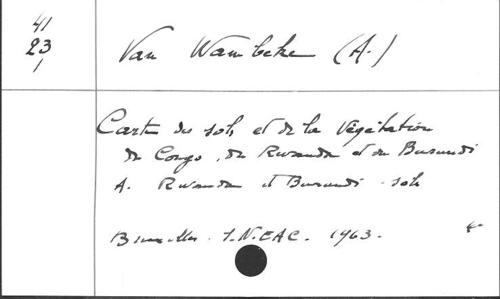 41
23
1
Van Wambeke (A.)
Carte des sols et de la végétation
du Congo, du Rwanda et du Burundi
A. Rwanda et Burundi - sols
Bruxelles. I.N.EAC. 1963.